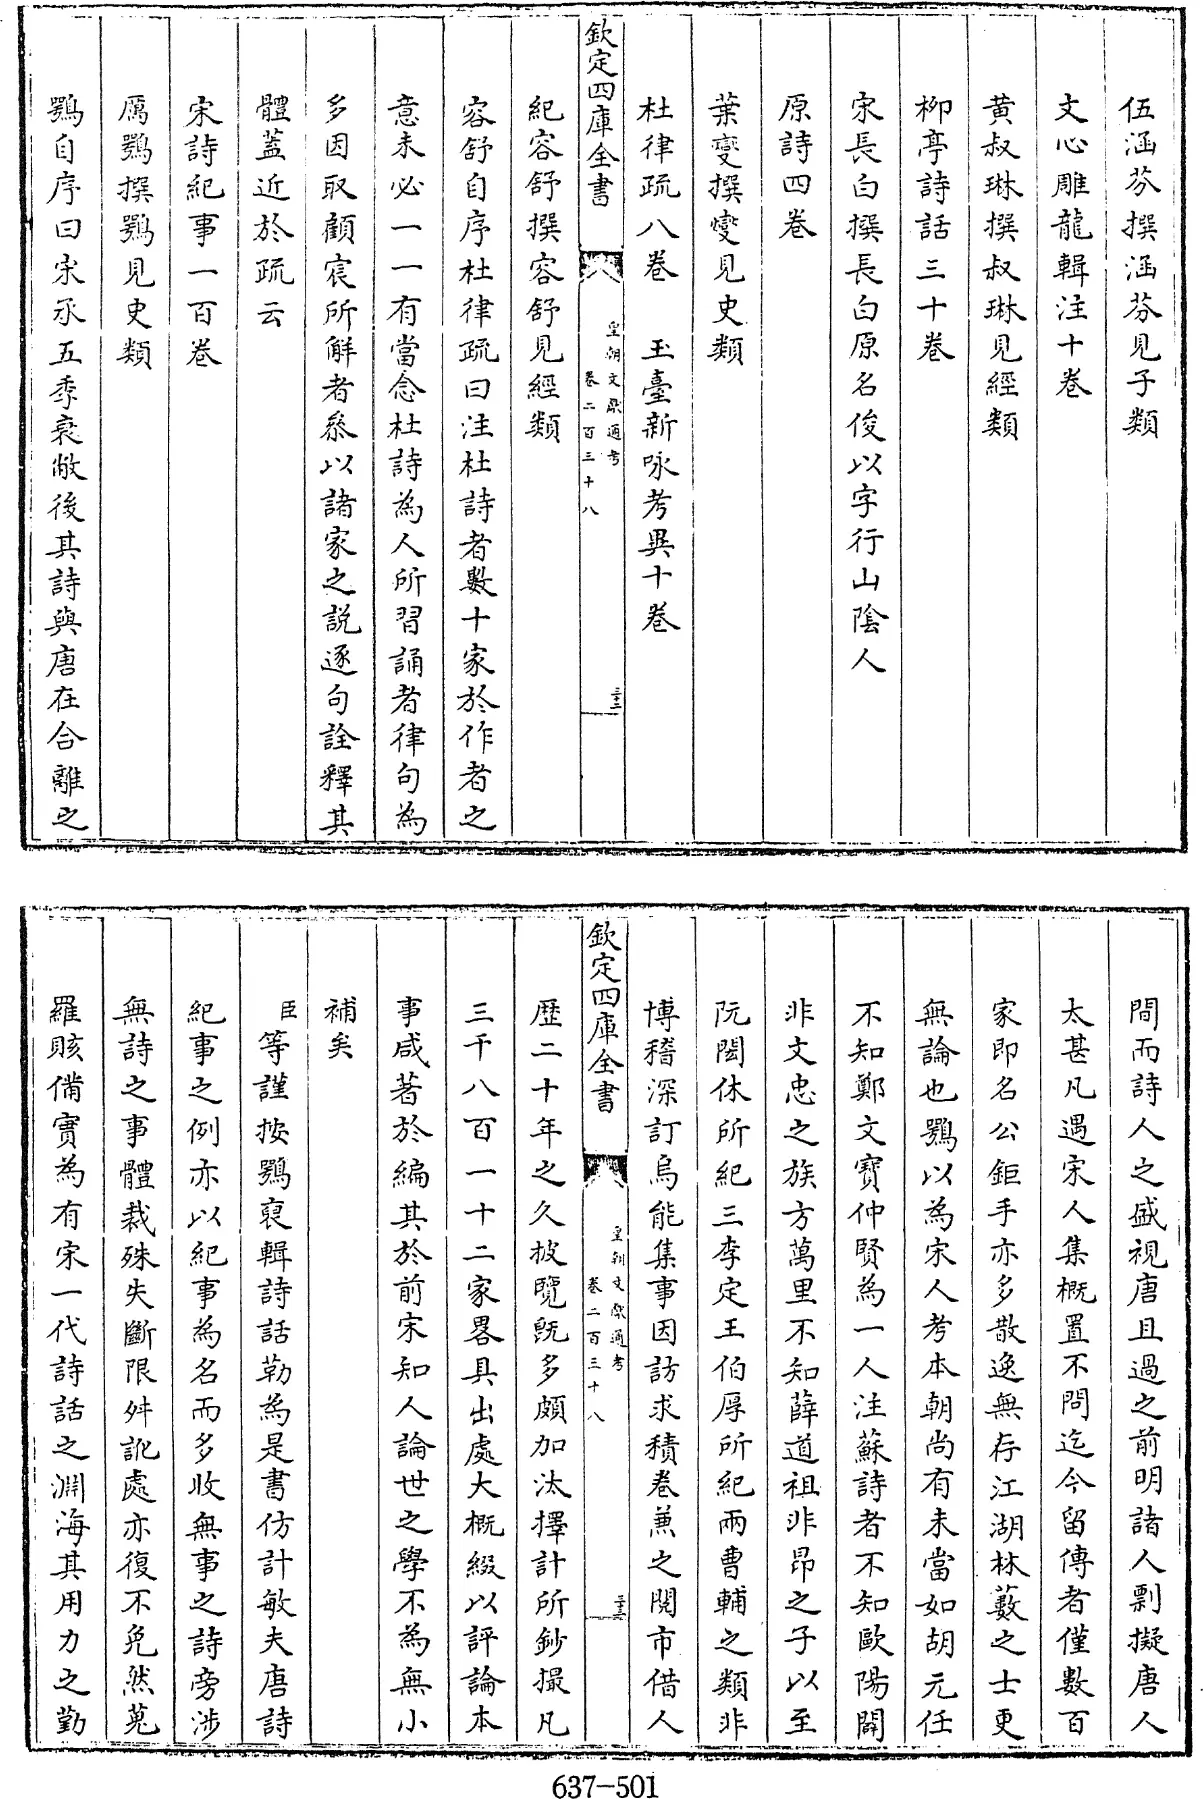 伍涵芬撰涵芬見子類
文心雕龍輯注十卷
黄叔琳撰叔琳見經類
柳亭詩話三十卷
宋長白撰長白原名俊以字行山陰人
原詩四卷
葉燮撰燮見史類
杜律疏八卷　玉臺新咏考異十卷
欽定四庫全書
皇朝文獻通考
卷二百三十八
三十二
紀容舒撰容舒見經類
容舒自序杜律疏曰注杜詩者數十家於作者之
意未必一一有當念杜詩為人所習誦者律句為
多因取顧宸所解者叅以諸家之説逐句詮釋其
體蓋近於疏云
宋詩紀事一百卷
厲鶚撰鶚見史類
鶚自序曰宋承五季衰敝後其詩與唐在合離之
間而詩人之盛視唐且過之前明諸人剽擬唐人
太甚凡遇宋人集概置不問迄今留傳者僅數百
家即名公鉅手亦多散逸無存江湖林藪之士更
無論也鶚以為宋人考本朝尚有未當如胡元任
不知鄭文寶仲賢為一人注蘇詩者不知歐陽闢
非文忠之族方萬里不知薛道祖非昂之子以至
阮閎休所紀三李定王伯厚所紀兩曹輔之類非
博稽深訂烏能集事因訪求積卷兼之閱市借人
欽定四庫全書
皇朝文獻通考
卷二百三十八
三十三
歴二十年之久披覽旣多頗加汰擇計所鈔撮凡
三千八百一十二家畧具出處大概綴以評論本
事咸著於編其於前宋知人論世之學不為無小
補矣
臣等謹按鶚裒輯詩話勒為是書仿計敏夫唐詩
紀事之例亦以紀事為名而多收無事之詩旁涉
無詩之事體裁殊失斷限舛訛處亦復不免然蒐
羅賅備實為有宋一代詩話之淵海其用力之勤
637-501